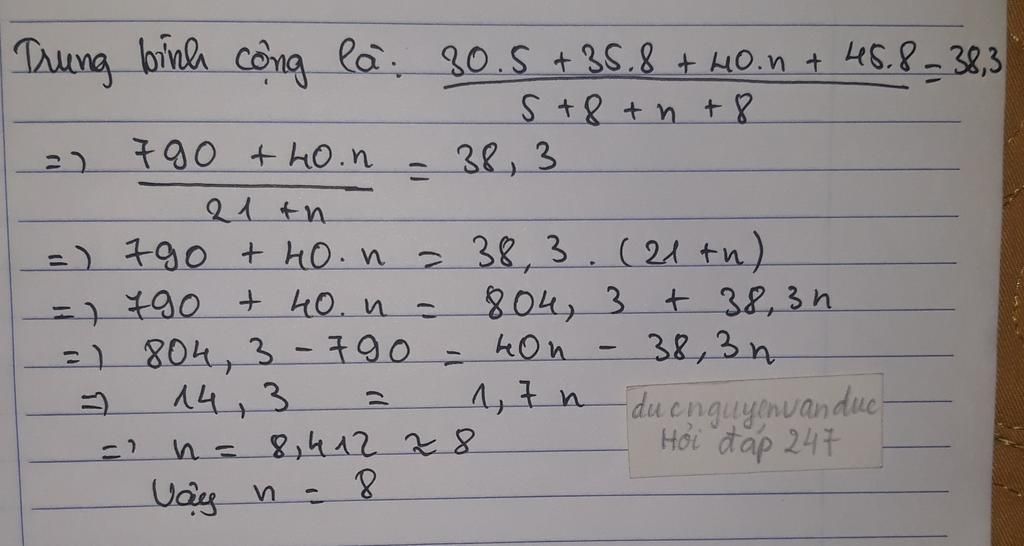 Trung bình cộng là: (30.5 + 35.8 + 40.n + 45.8)/(5 + 8 + n + 8) = 38,3
=> (790 + 40.n)/(21 + n) = 38,3
=> 790 + 40.n = 38,3 . (21 + n)
=> 790 + 40.n = 804,3 + 38,3n
=> 804,3 - 790 = 40n - 38,3n
=> 14,3 = 1,7n
=> n = 8,412 ≈ 8
Vậy n = 8
ducnguyenvanduc
Hỏi đáp 247